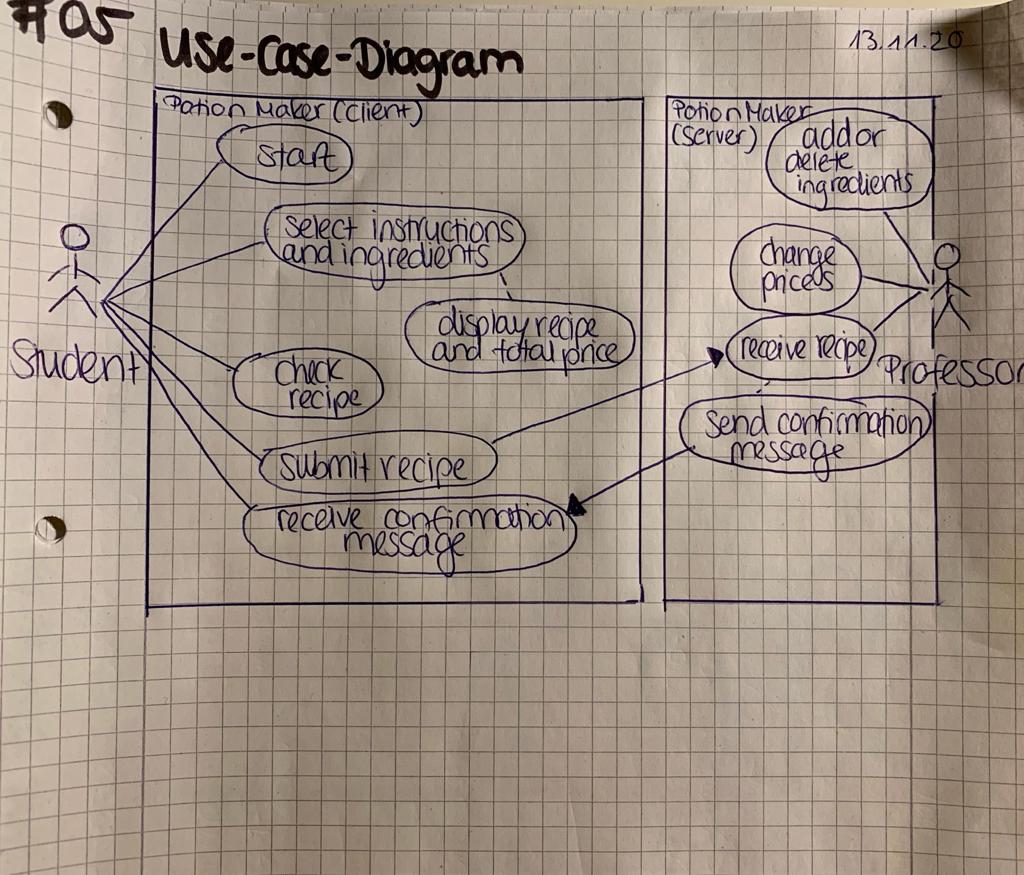 #05
Use-Case-Diagram
13.11.20
Potion Maker (Client)
start
select instructions
and ingredients
display recipe
and total price
check
recipe
submit recipe
receive confirmation
message
Student
Potion Maker
(Server)
add or
delete
ingredients
change
prices
receive recipe
send confirmation
message
Professor